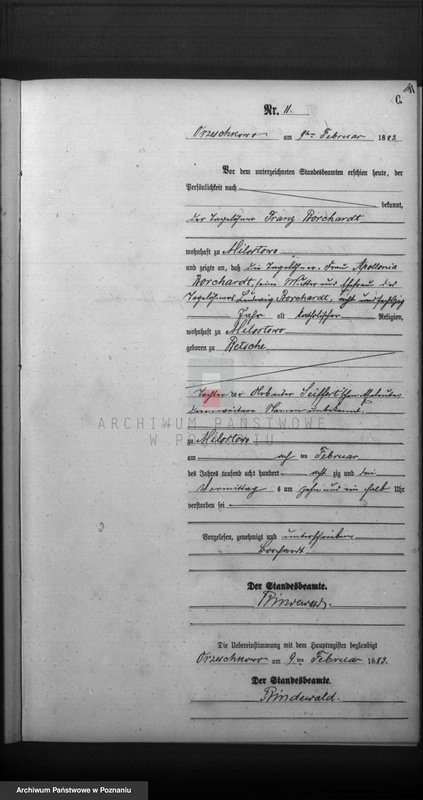 C.
Nr. 11.
Orzeschkowo am 9ten Februar 1883
Vor dem unterzeichneten Standesbeamten erschien heute, der
Persönlichkeit nach
bekannt,
der Tagelöhner Franz Borchardt
wohnhaft zu Milostowo
und zeigte an, daß die Tagelöhner-Frau Apollonia
Borchardt, seine Mutter und Ehefrau des
Tagelöhners Ludwig Borchardt, acht und sechszig
Jahr alt, katholischer Religion,
wohnhaft zu Milostowo
geboren zu Betsche
Tochter der Arbeiter Seiffert'schen Eheleute,
deren weitere Namen unbekannt
ARCHIWUM PAŃSTWOWE
W POZNANIU
zu Milostowo
am ten Februar
des Jahres tausend acht hundert acht zig und drei
Vormittag s um zehn und ein halb Uhr
verstorben sei
Vorgelesen, genehmigt und unterschrieben
Borchardt
Der Standesbeamte.
Rindewald.
Die Uebereinstimmung mit dem Hauptregister beglaubigt
Orzeschkowo am 9ten Februar 1883.
Der Standesbeamte.
Rindewald.
Archiwum Państwowe w Poznaniu